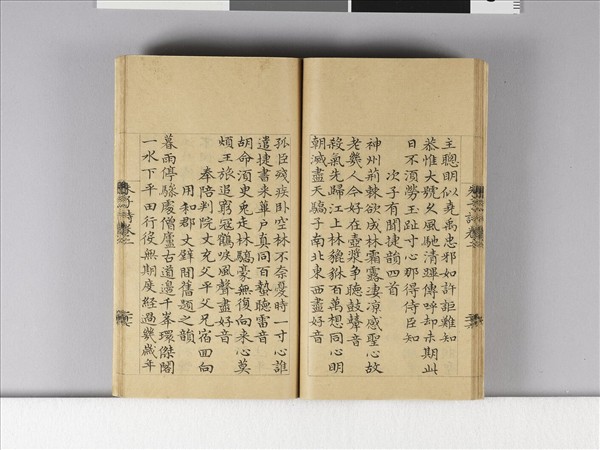 主聰明似堯禹忠邪如許詎難知
恭惟大號久風馳清蹕傳呼却未期此
日不須勞玉趾寸心那得侍臣知
次子有聞捷韻四首
神州荊棘欲成林霜露凄涼感聖心故
老幾人今好在壺漿爭聽鼓聲音
殺氣先歸江上林貔貅百萬想同心明
朝滅盡天驕子南北東西盡好音
孤臣殘疾卧空林不奈憂時一寸心誰
遣捷書来蓽户真同百蟄聽雷音
胡命須臾兎走林驕豪無復向来心莫
煩王旅追窮寇鶴唳風聲盡好音
奉陪判院丈充父平父兄宿回向
用知郡丈壁間舊題之韻
暮雨停驂處僧廬古道邊千峯環傑閣
一水下平田行役無期度經過幾歲年